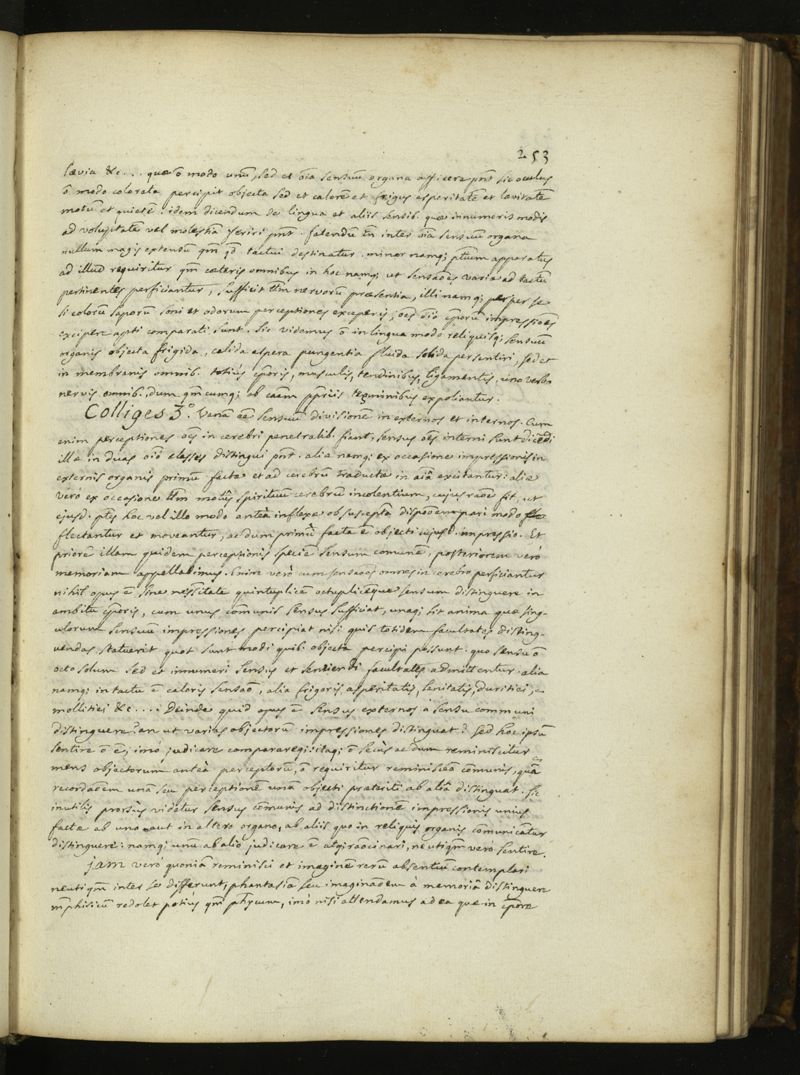 253
lævia &c... quæ õ modo unũ sed et oĩa sensuum organa afficere pnt sic oculus
õ modo colorata percipit objecta sed et calorẽ et frigus asperitatẽ et lævitatẽ
motũ et quietẽ: idem dicendum de lingua et aliis sensib. quæ innumeris modis
ad voluptatẽ vel molestiã feriri pnt. fatendũ tñ inter oĩa sensuum organa
nullum magis extensũ qm̃ qd tactui destinatur. minor namq; apparatus
ad illud requiritur qm̃ cæteris omnibus in hoc namq; ut sensaões variæ ad tactũ
pertinentes perficiantur, sufficit tm̃ nervorũ præsentia, illi namq; per se
si colorũ saporũ soni et odorum perceptiones exceperis, oẽs cporũ impressiões
excipere apti comparati sunt. sic videmus õ in lingua modo reliquisq; sensuũ
organis objecta frigida, calida aspera pungentia fluida solida persentiri, sed et
in membranis omnib. totius cporis, musculis, tendinibus, ligamentis, uno verbo
nervis omnib. dum qm̃cumq; ob cãam ppriis tegminibus expoliantur.
Colliges 3.º vanã eẽ sensuũ divisionẽ in externos et internos. Cum
enim perceptiones oẽs in cerebri penetralib. fiant, sensus oẽs interni sunt dicẽdi
illæ in duas classes distingui pnt. aliæ namq; ex occasione impressionis in
externis organis primũ factæ et ad cerebrũ traductæ in aĩa excitantur: aliæ
vero ex occasione tm̃ motûs spirituũ cerebrũ incolentium, cujus raõe fit, ut
ejusd. ptes hoc vel illo modo anteà inflexæ pari modo
flectantur et moveantur, ac dum primũ facta ẽ objecti impressio. Et
priorẽ illam quidem perceptionis speciẽ sensum comunẽ, posteriorem verò
memoriam appellabimus. verò cum sensaões omnes in cerebro perficiantur
nihil opus ẽ sine necessitate quintuplicẽ octuplicẽque sensum distinguere in
ambitu cporis, cum unus comunis sensus sufficiat, unaq; sit anima quæ sing-
ulorum sensuũ impressiones percipiat nisi quis totidem facultates disting-
uendas statuerit quot sunt modi quib. objecta percipi possunt. quo sensu õ
octo solum sed et innumeri sensus et sentiendi facultates admittentur. alia
namq; in tactu ẽ caloris sensaõ, alia frigoris asperitatis, lenitatis, duritiei,
mollitiei &c.... Deinde quid opus ẽ sensus externos à sensu communi
distinguere? an ut varias objectorũ impressiones distinguat? sed hoc ipsũ
sentire õ ẽ; imò judicare comparareq; itaq; õ secus ac dum reminiscitur
mens objectorum anteà perceptorũ, õ requiritur reminiscẽa comunis, quæ
recordaõem unã seu perceptionẽ unã objecti præteriti ab aliâ distinguat. sic
inutilis prorsùs videtur sensus comunis ad distinctionẽ impressionis unius
factæ ab uno aut in altero organo, ab aliis quæ in reliquis organis comunicãtur
distinguere: namq; unũ ab alio judicare ẽ ac ratiocinari, neutiqm̃ vero sentire.
jam verò quoniã reminisci et imaginẽ rerũ absentiũ contemplari
neutiqm̃ inter se differunt, phantasiã seu imaginaõem à memoriâ distinguere
mphisicũ redolet potiùs qm̃ physicum, imò nisi attendamus ad ea quæ in cpore